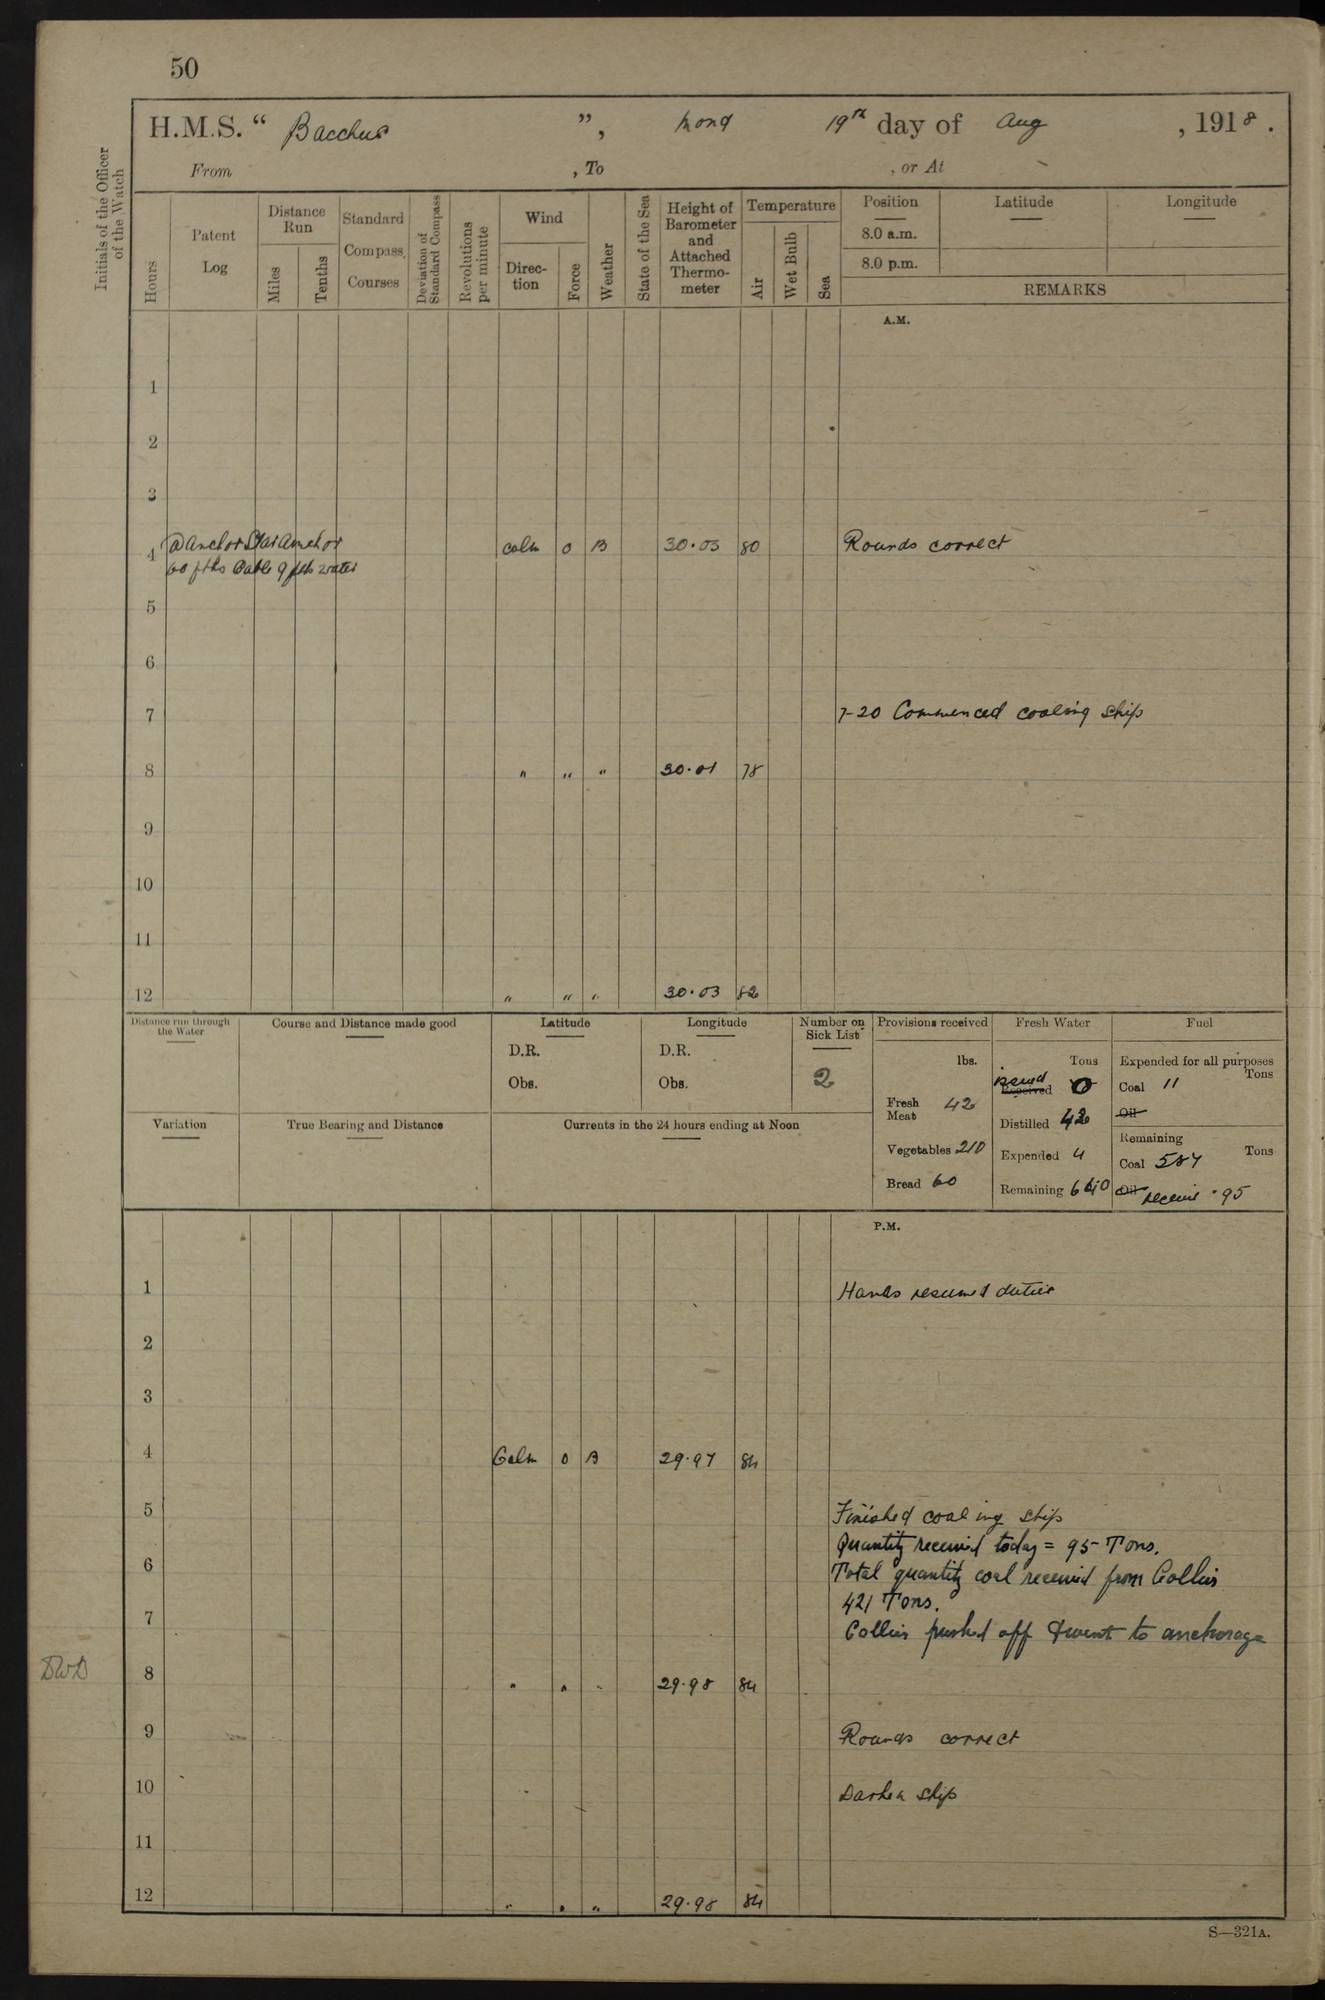 50
H.M.S. “ Bacchus ”, Mond 19th day of Aug , 1918 .
From , To , or At -
Initials of the Officer of the Watch
Hours
Patent Log
Distance Run
Miles
Tenths
Standard Compass Courses
Deviation of Standard Compass
Revolutions per minute
Wind
Direction
Force
Weather
State of the Sea
Height of Barometer and Attached Thermometer
Temperature
Air
Wet Bulb
Sea
Position
8.0 a.m.
8.0 p.m.
Latitude
Longitude
REMARKS
A.M.
1
2
3
4 @ Anchor Star Anchor calm 0 B 30.03 80 Rounds correct
60 fths Cable 9 fth water
5
6
7 7-20 Commenced coaling ship
8 " " " 30.01 78
9
10
11
12 " " " 30.03 82
Distance run through the Water
Course and Distance made good
Latitude
D.R.
Obs.
Longitude
D.R.
Obs.
Number on Sick List
2
Provisions received
lbs.
Fresh Meat 42
Vegetables 210
Bread 60
Fresh Water
Tons
issued Received 0
Distilled 42
Expended 4
Remaining 640
Fuel
Expended for all purposes
Tons
Coal 11
Oil
Remaining
Coal 587 Tons
Oil receive 95
Variation
True Bearing and Distance
Currents in the 24 hours ending at Noon
P.M.
1 Hands resumed duties
2
3
4 Calm 0 B 29.97 84
5 Finished coaling ship
Quantity received today = 95 Tons.
6 Total quantity coal received from Collier
421 Tons.
7 Collier pushed off & went to anchorage
DWD 8 " " " 29.98 84
9 Rounds correct
10 Darken ship
11
12 " " " 29.98 84
S—321A.